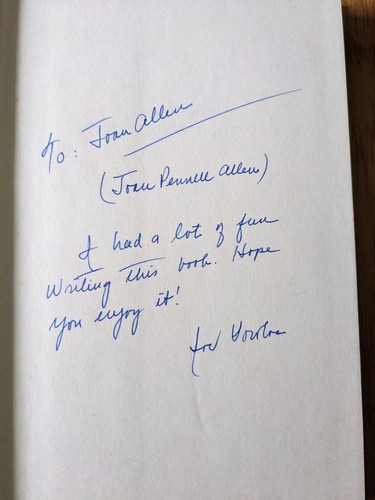 To: Joan Allen
(Joan Pennell Allen)
I had a lot of fun
Writing this book. Hope
you enjoy it!